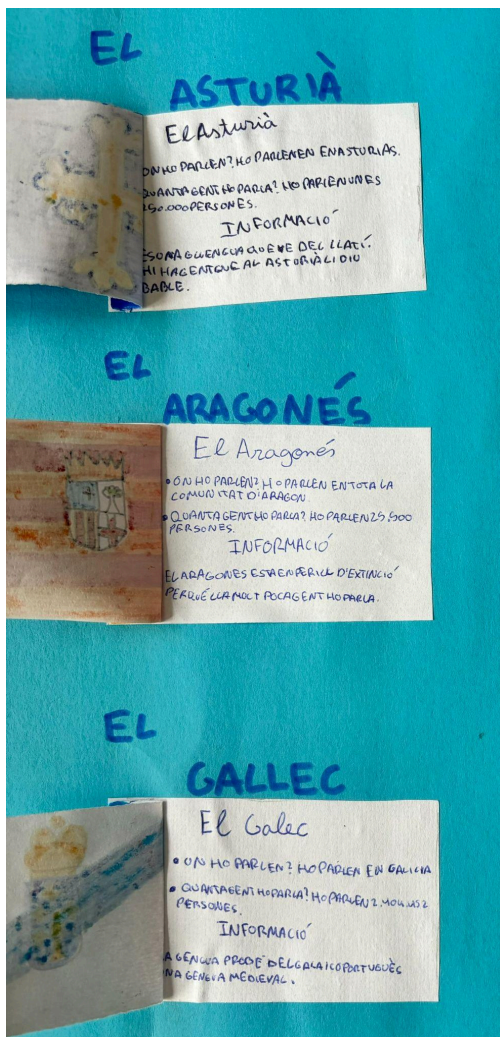 EL
ASTURIÀ
El Asturià
ON HO PARLEN? HO PARLENEN EN ASTURIAS.
QUANTA GENT HO PARLA? HO PARLEN UNES
250.000 PERSONES.
INFORMACIÓ
ES UNA GLENGUA QUE VE DEL LLATÍ.
HI HA GENT QUE AL ASTORIÀ LI DIU
BABLE.
EL
ARAGONÉS
El Aragonés
• ON HO PARLEN? HO PARLEN EN TOTA LA
COMUNITAT D'ARAGON.
• QUANTA GENT HO PARLA? HO PARLEN 25.500
PERSONES.
INFORMACIÓ
EL ARAGONES ESTA EN PERILL D'EXTINCIÓ
PERQUÉ LLA MOLT POCA GENT HO PARLA.
EL
GALLEC
El Galec
• ON HO PARLEN? HO PARLEN EN GALICIA
• QUANTA GENT HO PARLA? HO PARLEN
PERSONES.
INFORMACIÓ
A GENGUA PRODE DEL GALAICO PORTUGUÈS
NA GENGUA MEDIEVAL.